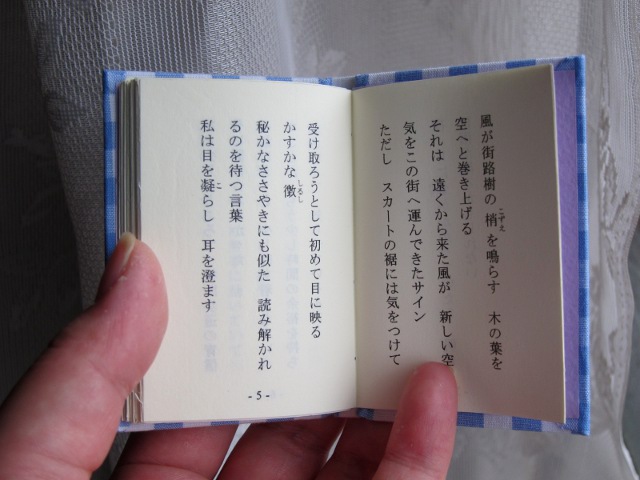 風が街路樹の 梢を鳴らす 木の葉を
空へと巻き上げる
それは 遠くから来た風が 新しい空
気をこの街へ運んできたサイン
ただし スカートの裾には気をつけて
受け取ろうとして初めて目に映る
かすかな 徴
秘かなささやきにも似た 読み解かれ
るのを待つ言葉
私は目を凝らし 耳を澄ます
こずえ
しるし
こ
- 5 -